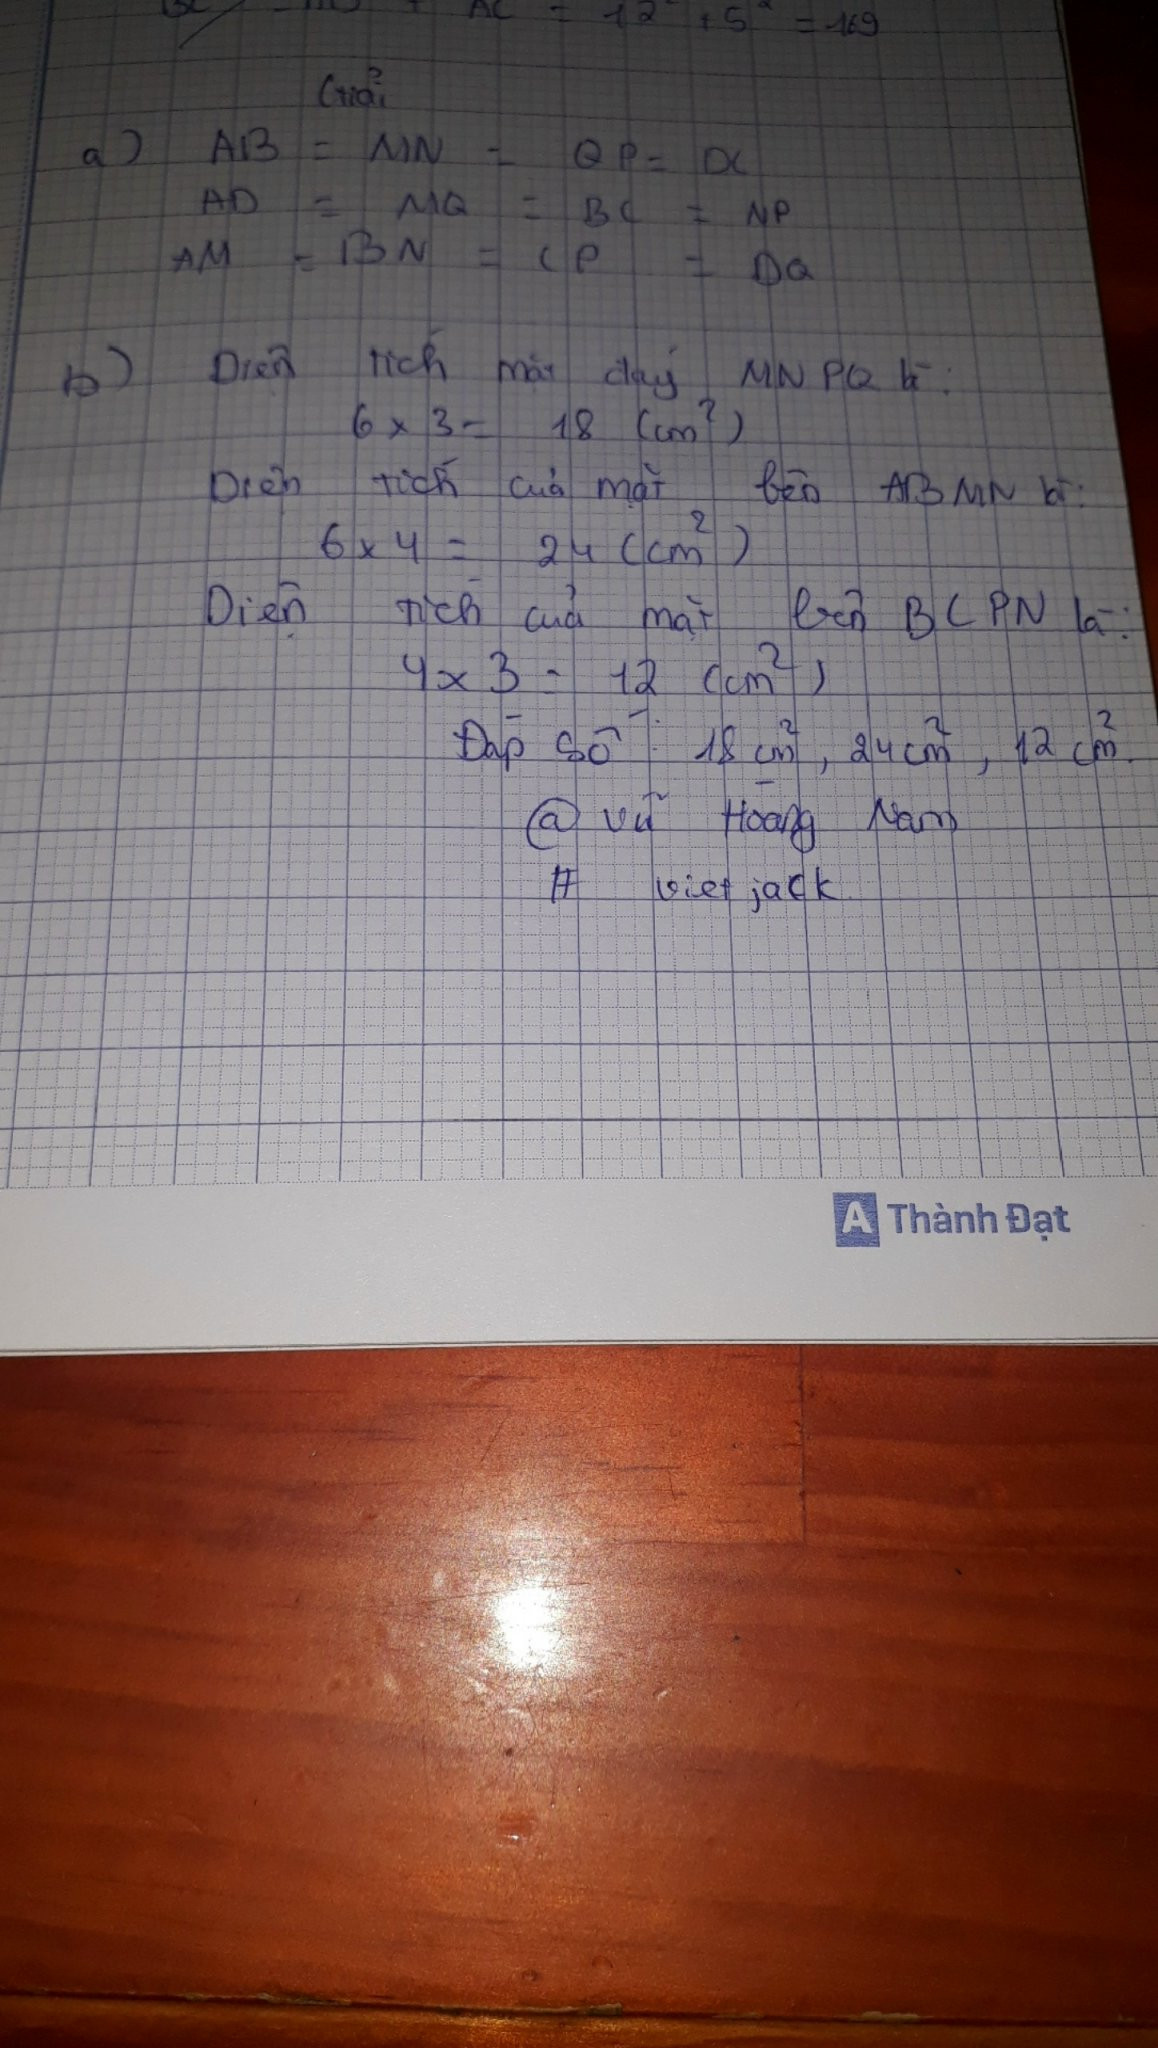 AC = 12² + 5² = 169
Giải
a) AB = MN = QP = DC
AD = MQ = BC = NP
AM = BN = CP = DQ
b) Diện tích mặt đáy MNPQ là:
6 x 3 = 18 (cm²)
Diện tích của mặt bên ABMN là:
6 x 4 = 24 (cm²)
Diện tích của mặt bên BCPN là:
4 x 3 = 12 (cm²)
Đáp số: 18 cm², 24 cm², 12 cm².
@ Vũ Hoàng Nam
# vietjack.
A Thành Đạt